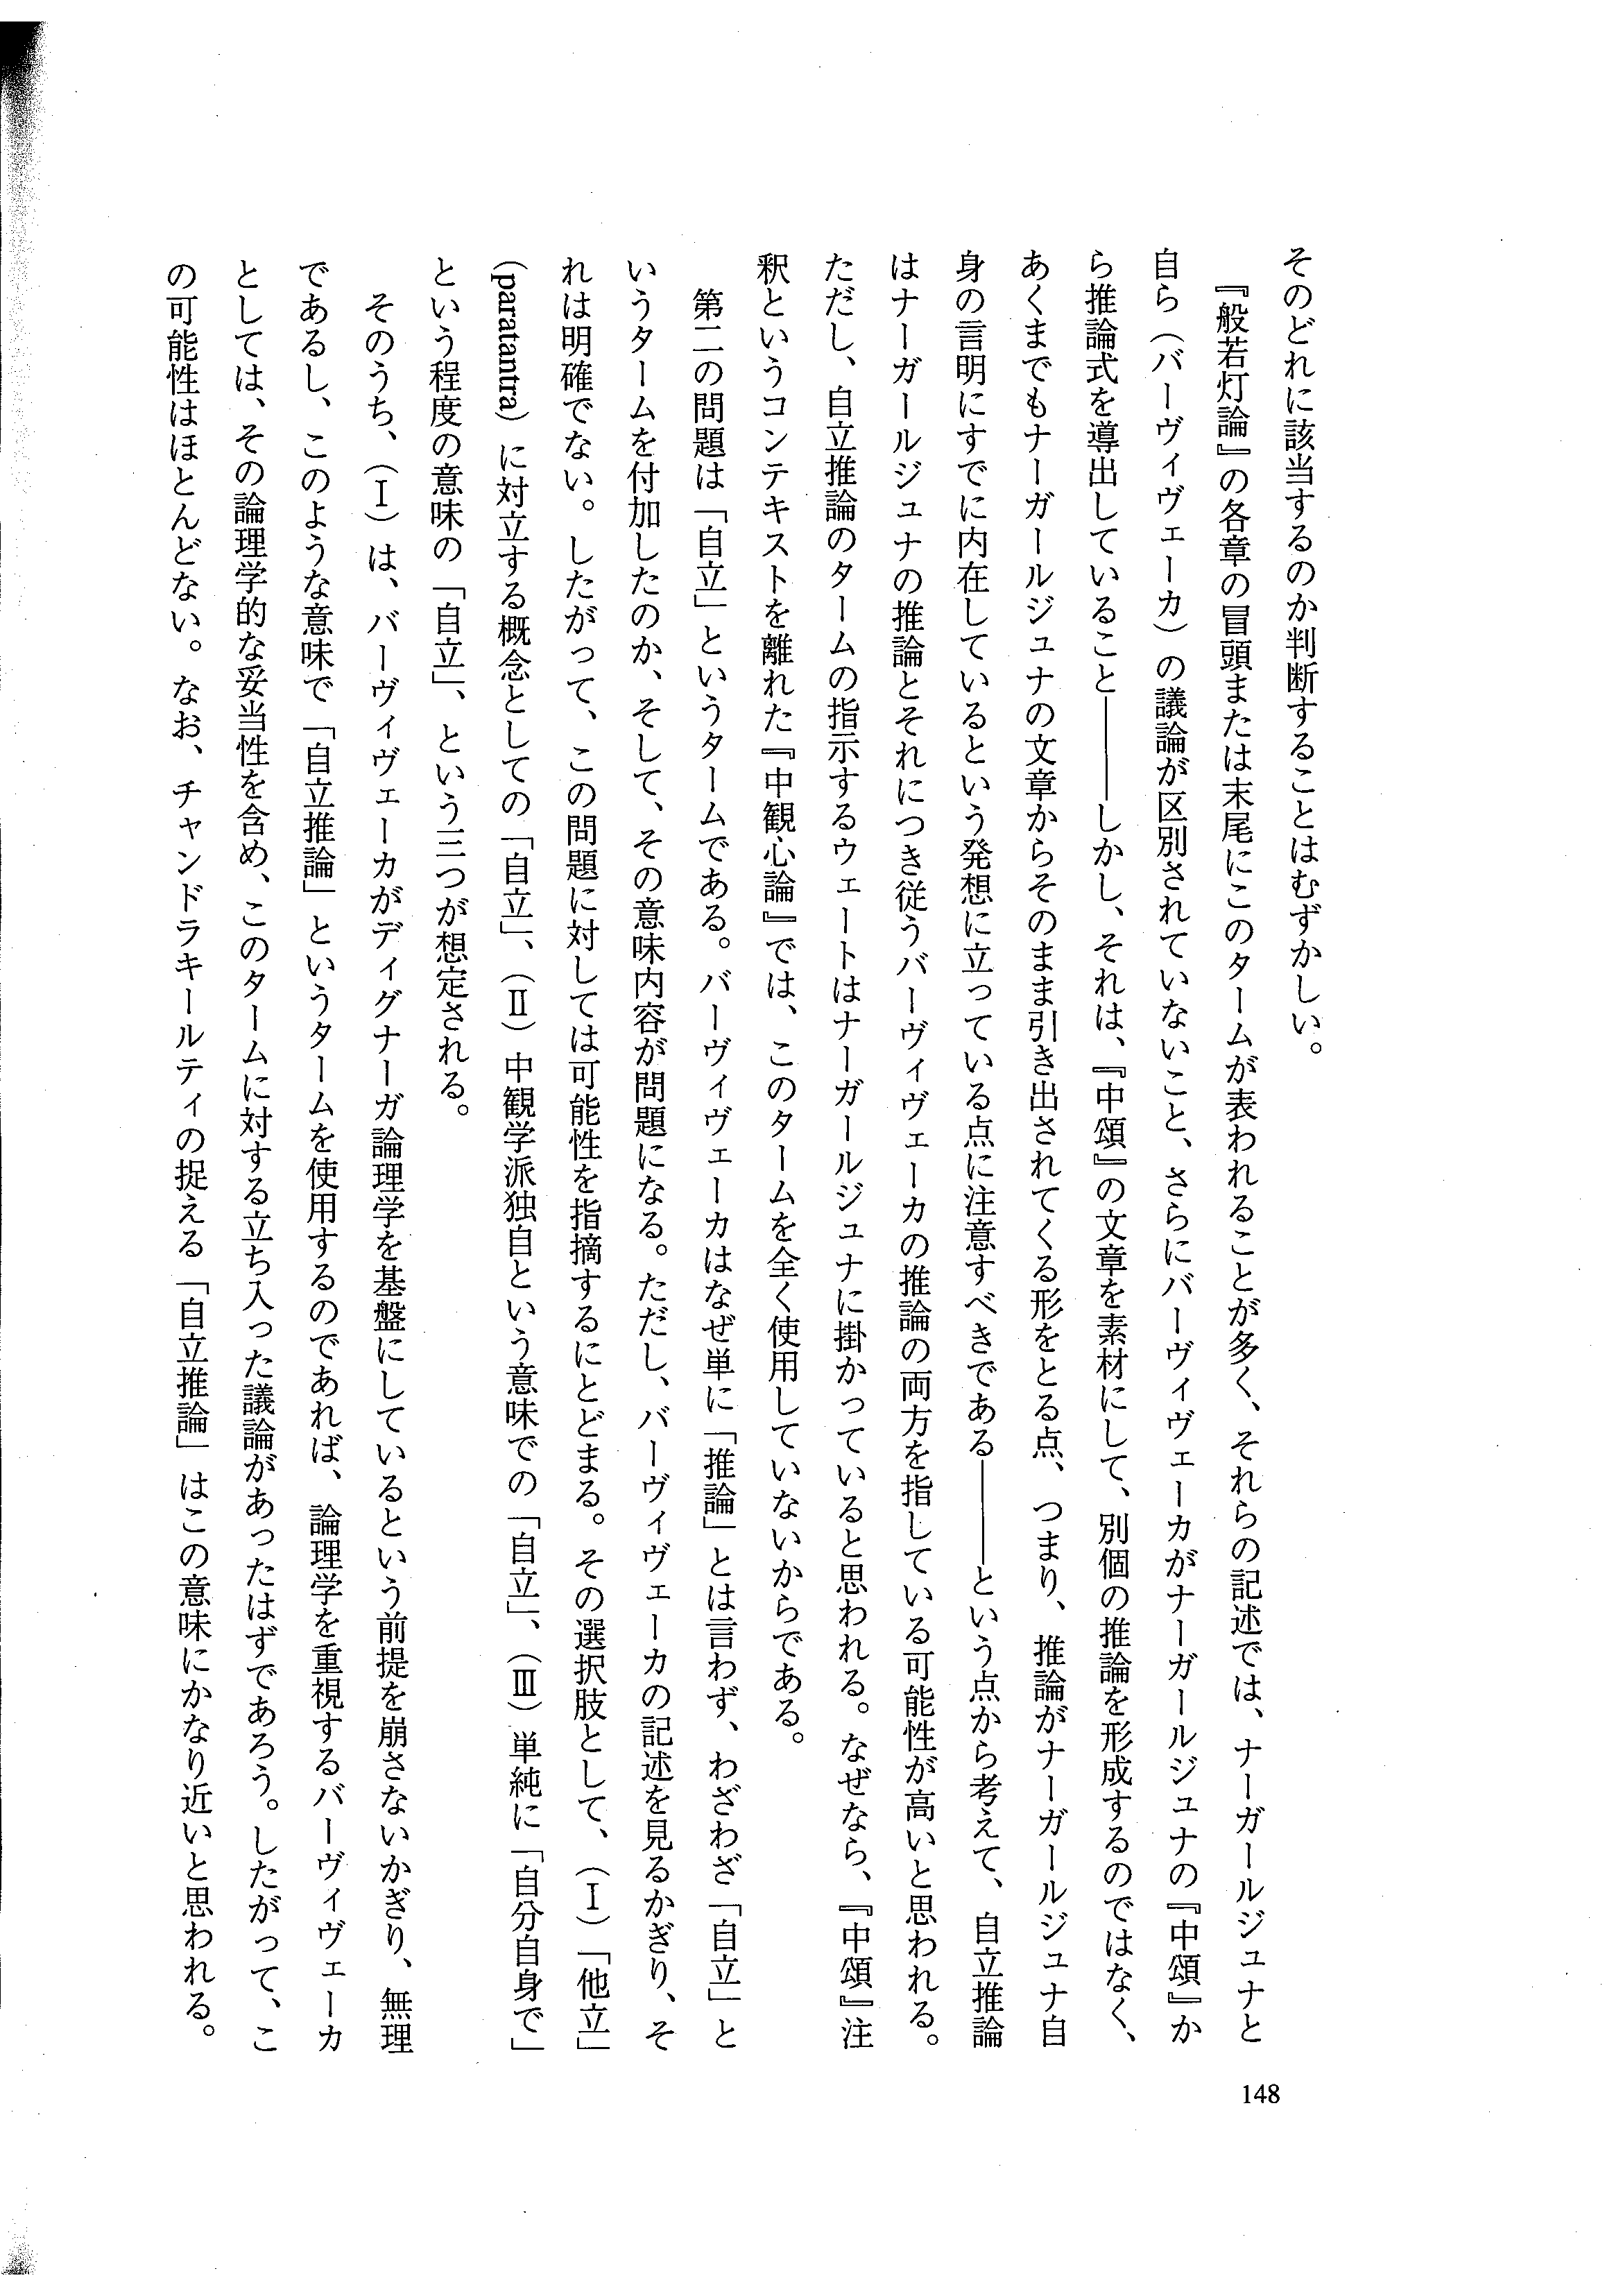 そのどれに該当するのか判断することはむずかしい。
『般若灯論』の各章の冒頭または末尾にこのタームが表われることが多く、それらの記述では、ナーガールジュナと
自ら（バーヴィヴェーカ）の議論が区別されていないこと、さらにバーヴィヴェーカがナーガールジュナの『中頌』か
ら推論式を導出していること――しかし、それは、『中頌』の文章を素材にして、別個の推論を形成するのではなく、
あくまでもナーガールジュナの文章からそのまま引き出されてくる形をとる点、つまり、推論がナーガールジュナ自
身の言明にすでに内在しているという発想に立っている点に注意すべきである――という点から考えて、自立推論
はナーガールジュナの推論とそれにつき従うバーヴィヴェーカの推論の両方を指している可能性が高いと思われる。
ただし、自立推論のタームの指示するウェートはナーガールジュナに掛かっていると思われる。なぜなら、『中頌』注
釈というコンテキストを離れた『中観心論』では、このタームを全く使用していないからである。
第二の問題は「自立」というタームである。バーヴィヴェーカはなぜ単に「推論」とは言わず、わざわざ「自立」と
いうタームを付加したのか、そして、その意味内容が問題になる。ただし、バーヴィヴェーカの記述を見るかぎり、そ
れは明確でない。したがって、この問題に対しては可能性を指摘するにとどまる。その選択肢として、（Ⅰ）「他立」
（paratantra）に対立する概念としての「自立」、（Ⅱ）中観学派独自という意味での「自立」、（Ⅲ）単純に「自分自身で」
という程度の意味の「自立」、という三つが想定される。
そのうち、（Ⅰ）は、バーヴィヴェーカがディグナーガ論理学を基盤にしているという前提を崩さないかぎり、無理
であるし、このような意味で「自立推論」というタームを使用するのであれば、論理学を重視するバーヴィヴェーカ
としては、その論理学的な妥当性を含め、このタームに対する立ち入った議論があったはずであろう。したがって、こ
の可能性はほとんどない。なお、チャンドラキールティの捉える「自立推論」はこの意味にかなり近いと思われる。
148